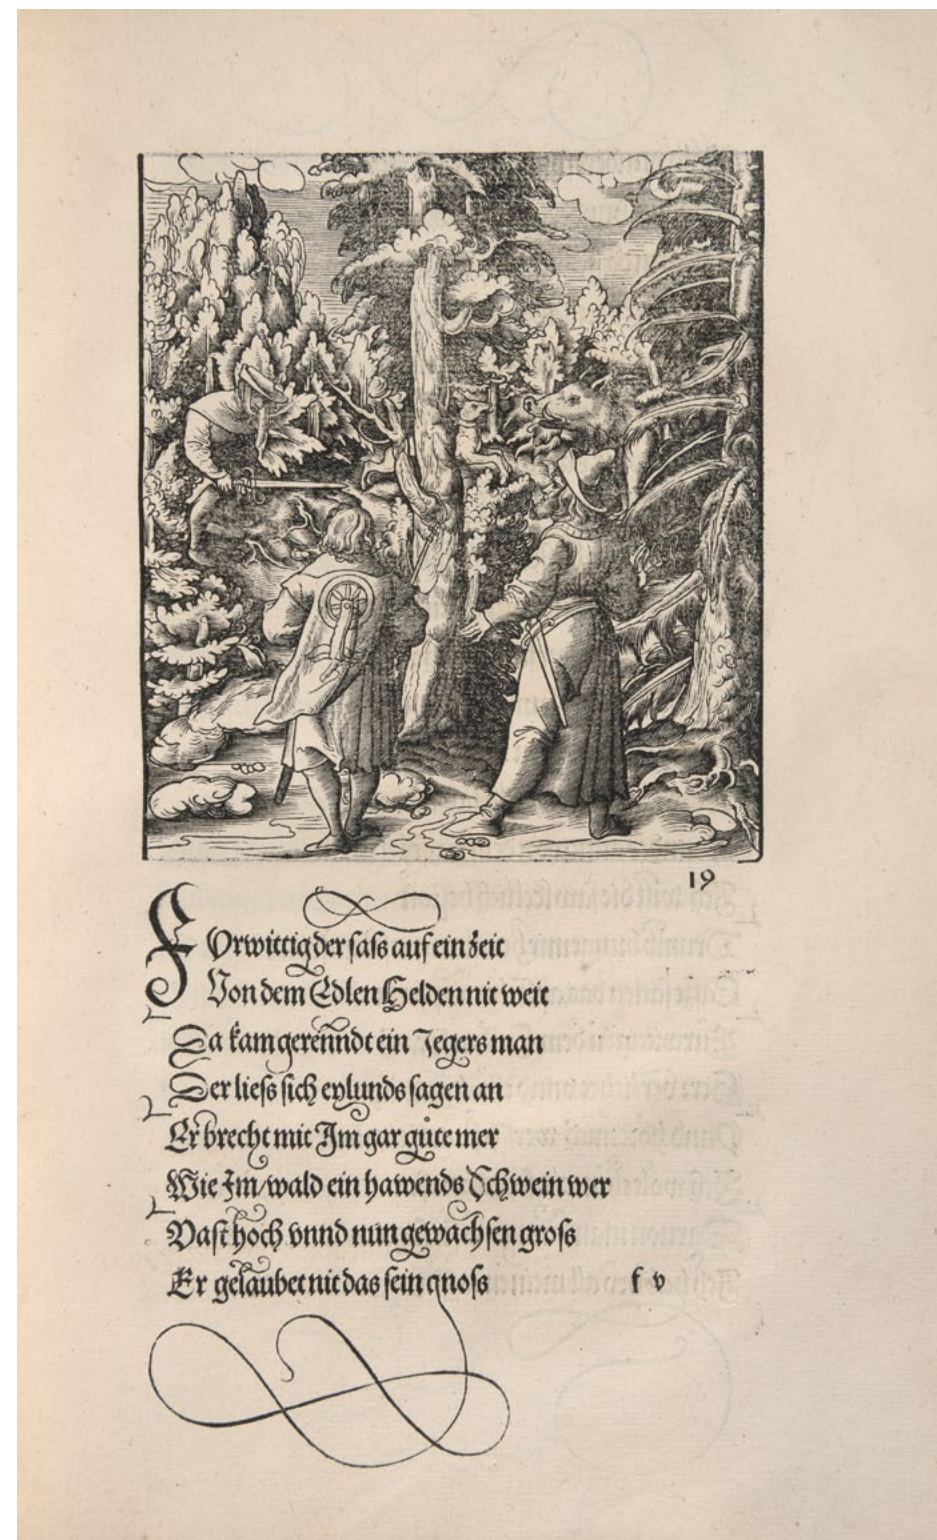 19
FOrwittig der saſs auf ein zeit
Von dem Edlen Helden nit weit
Da kam gerenndt ein Jegers man
Der lieſs ſich eylunds ſagen an
Er brecht mit Im gar gůte mer
Wie Im/wald ein hawends Schwein wer
Vaſt hoch vnnd nun gewachſen groſs
Er gelaubet nit das ſein gnoſs
f v